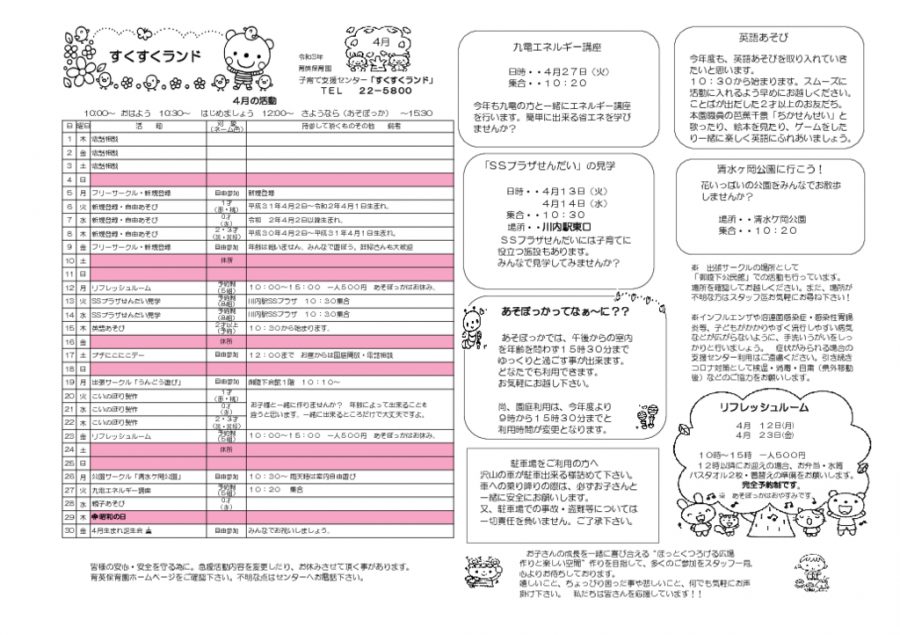 すくすくランド
4月
令和3年
育英保育園
子育て支援センター「すくすくランド」
TEL 22-5800
4月の活動
10:00～ おはよう 10:30～ はじめましょう 12:00～ さようなら(あそぼっか) ～15:30
日 曜日 活 動 対 象(ネーム色) 持参して頂くものその他 備考
1 木 電話相談
2 金 電話相談
3 土 電話相談
4 日
5 月 フリーサークル・新規登録 自由参加 新規登録
6 火 新規登録・自由あそび 1才(赤・橘) 平成31年4月2日～令和2年4月1日生まれ。
7 水 新規登録・自由あそび 0才 令和 2年4月2日以降生まれ。
8 木 新規登録・自由あそび 2・3才 平成30年4月2日～平成31年4月1日生まれ。
9 金 フリーサークル・新規登録 自由参加 年齢は問いません、みんなで遊ぼう。妊婦さんも大歓迎
10 土 休所
11 日
12 月 リフレッシュルーム 予約制(5組) 10:00～15:00 一人500円 あそぼっかはお休み。
13 火 SSプラザせんだい見学 予約制(8組) 川内駅SSプラザ 10:30集合
14 水 SSプラザせんだい見学 予約制(8組) 川内駅SSプラザ 10:30集合
15 木 英語あそび 2才以上(予約) 10:30から始まります。
16 金 休所
17 土 プチにこにこデー 12:00まで お昼からは園庭開放・電話相談
18 日
19 月 出張サークル「うんどう遊び」 自由参加 御陵下会館1階 10:10～
20 火 こいのぼり製作 1才(赤・橘)
21 水 こいのぼり製作 0才
22 木 こいのぼり製作 2・3才
お子様と一緒に作りませんか? 年齢によって出来ることも
違うと思います。一緒に出来るところだけで大丈夫ですよ。
23 金 リフレッシュルーム 予約制(5組) 10:00～15:00 一人500円 あそぼっかはお休み。
24 土 休所
25 日
26 月 公園サークル「清水ケ岡公園」 自由参加 10:30～ 雨天時は室内自由遊び
27 火 九電エネルギー講座 予約制(5組) 10:20 集合
28 水 親子あそび 0才
29 木 昭和の日
30 金 4月生まれ誕生会 自由参加 みんなでお祝いしましょう。
皆様の安心・安全を守る為に。急遽活動内容を変更したり、お休みさせて頂く事があります。
育英保育園ホームページをご確認下さい。不明な点はセンターへお電話下さい。
九電エネルギー講座
日時・・4月27日(火)
集合・・10:20
今年も九電の方と一緒にエネルギー講座
を行います。簡単に出来る省エネを学び
ませんか?
「SSプラザせんだい」の見学
日時・・4月13日(火)
4月14日(水)
集合・・10:30
場所・・川内駅東口
SSプラザせんだいには子育てに
役立つ施設もあります。
みんなで見学してみませんか?
あそぼっかってなぁ～に??
あそぼっかでは、午後からの室内
を年齢を問わず15時30分まで
ゆっくりと過ごす事が出来ます。
どなたでも利用できます。
お気軽にお越し下さい。
尚、園庭利用は、今年度より
9時から15時30分までと
利用時間が変更となります。
駐車場をご利用の方へ
沢山の車が駐車出来る様詰めて下さい。
車への乗り降りの際は、必ずお子さんと
一緒に安全にお願いします。
又、駐車場での事故・盗難等については
一切責任を負いません。ご了承下さい。
英語あそび
今年度も、英語あそびを取り入れていき
たいと思います。
10:30から始まります。スムーズに
活動に入れるよう早めにお越しください。
ことばが出だした2才以上のお友だち。
本園職員の芭蕉千景「ちかせんせい」と
歌ったり、絵本を見たり、ゲームをした
り一緒に楽しく英語にふれあいましょう。
清水ヶ岡公園に行こう!
花いっぱいの公園をみんなでお散歩
しませんか?
場所・・清水ケ岡公園
集合・・10:20
※ 出張サークルの場所として
「御陵下公民館」での活動も行っています。
場所を確認してお越しください。また、場所が
不明な方はスタッフ迄お気軽にお尋ね下さい!
※インフルエンザや溶連菌感染症・感染性胃腸
炎等、子どもがかかりやすく流行しやすい病気
などが広がらないように、手洗いうがいをしっ
かりと行いましょう。 症状がみられる場合の
支援センター利用はご遠慮ください。引き続き
コロナ対策として検温・消毒・自粛(県外移動
後)などのご協力をお願いします。
リフレッシュルーム
4月 12日(月)
4月 23日(金)
10時～15時 一人500円
12時以降にお迎えの場合、お弁当・水筒
バスタオル2枚・着替えの準備をお願いします。
完全予約制です。
※ あそぼっかはおやすみです。
お子さんの成長を一緒に喜び合える“ほっとくつろげる広場
作りと楽しい空間”作りを目指して、多くのご参加をスタッフ一同、
心よりお待ちしております。
嬉しいこと、ちょっぴり困った事や悲しいこと、何でも気軽にお声
掛け下さい。 私たちは皆さんを応援しています!!